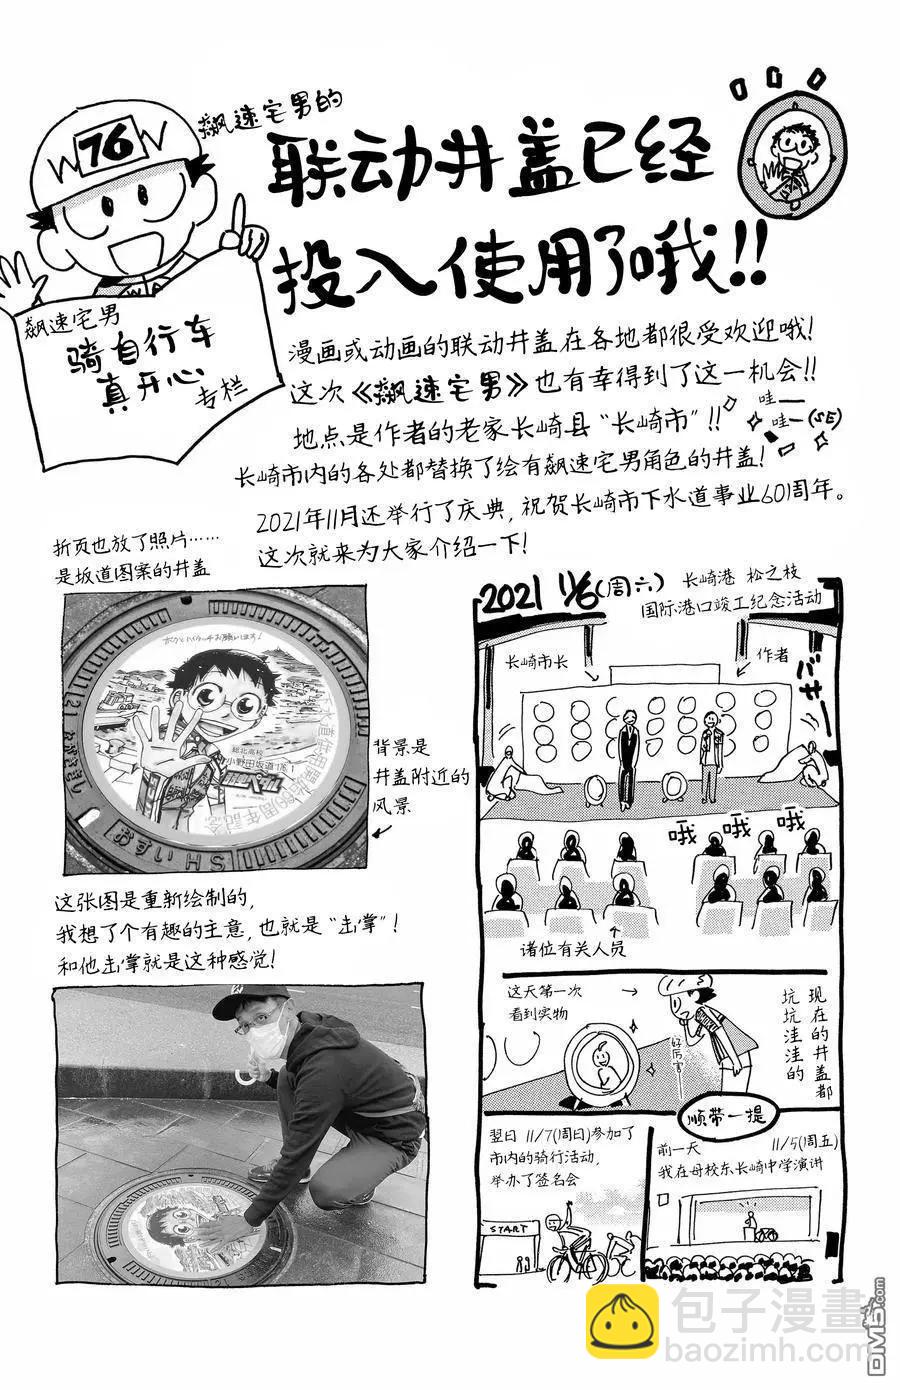 飙速宅男的
联动井盖已经
投入使用了哦!!
W 76 W
飙速宅男
骑自行车
真开心
专栏
漫画或动画的联动井盖在各地都很受欢迎哦!
这次《飙速宅男》也有幸得到了这一机会!!
地点是作者的老家长崎县“长崎市”!!
哇——
哇—(SE)
长崎市内的各处都替换了绘有飙速宅男角色的井盖!
2021年11月还举行了庆典,祝贺长崎市下水道事业60周年。
这次就来为大家介绍一下!
折页也放了照片……
是坂道图案的井盖
総北高校
小野田坂道(16)
おすい HS
背景是
井盖附近的
风景
这张图是重新绘制的,
我想了个有趣的主意,也就是“击掌”!
和他击掌就是这种感觉!
2021 11/6(周六)
长崎港 松之枝
国际港口竣工纪念活动
长崎市长
作者
バサー
哦 哦 哦
诸位有关人员
这天第一次
看到实物
好厉害
现在的井盖都
坑坑洼洼的
顺带一提
翌日 11/7(周日)参加了
市内的骑行活动,
举办了签名会
START
前一天 11/5(周五)
我在母校东长崎中学演讲
包子漫畫
baozimh.com
DM5.com